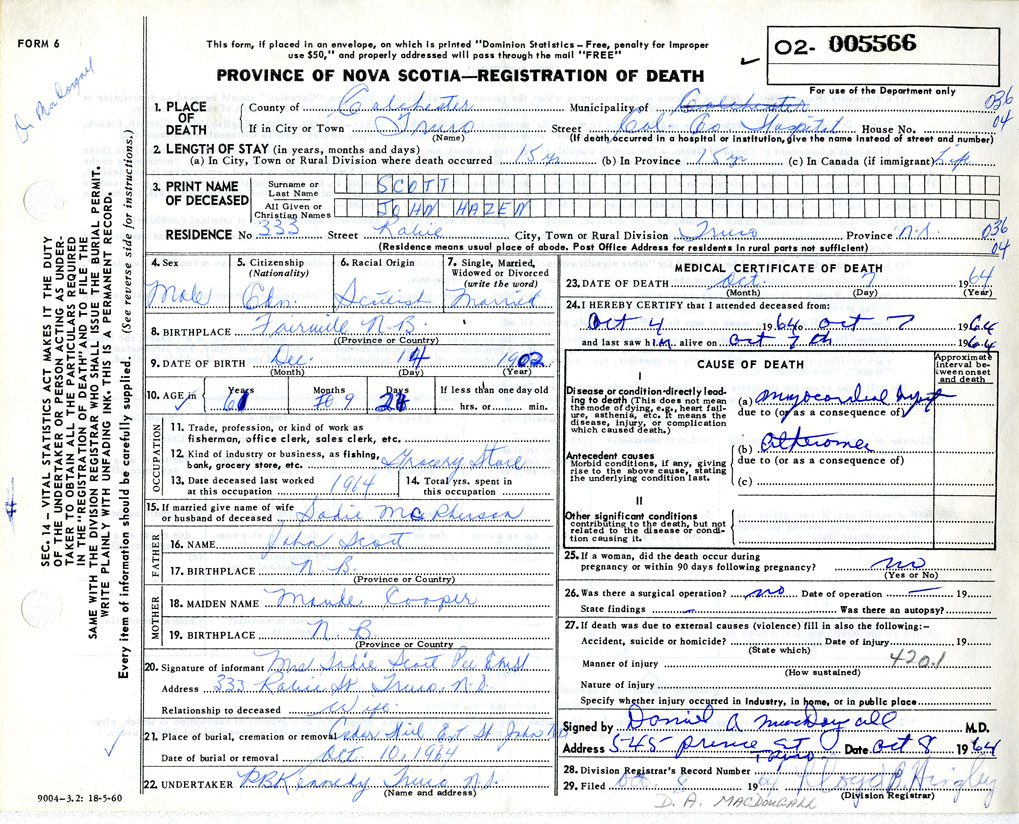 FORM 6
This form, if placed in an envelope, on which is printed "Dominion Statistics – Free, penalty for improper
use $50," and properly addressed will pass through the mail "FREE"
02- 005566
PROVINCE OF NOVA SCOTIA—REGISTRATION OF DEATH
For use of the Department only
Dr MacDougall
SEC. 14 – VITAL STATISTICS ACT MAKES IT THE DUTY
OF THE UNDERTAKER OR PERSON ACTING AS UNDER-
TAKER TO OBTAIN ALL THE PARTICULARS REQUIRED
IN THE "REGISTRATION OF DEATH" AND TO FILE THE
SAME WITH THE DIVISION REGISTRAR WHO SHALL ISSUE THE BURIAL PERMIT.
WRITE PLAINLY WITH UNFADING INK. THIS IS A PERMANENT RECORD.
Every item of information should be carefully supplied. (See reverse side for instructions.)
1. PLACE OF DEATH
County of Colchester Municipality of Colchester 036
If in City or Town Truro Street Col. Co. Hospital House No. 04
(Name) (If death occurred in a hospital or institution, give the name instead of street and number)
2. LENGTH OF STAY (in years, months and days)
(a) In City, Town or Rural Division where death occurred 15 yr (b) In Province 15 yr (c) In Canada (if immigrant) Life
3. PRINT NAME OF DECEASED
Surname or Last Name SCOTT
All Given or Christian Names JOHN HAZEN
RESIDENCE No 333 Street Robie City, Town or Rural Division Truro Province N.S. 036
04
(Residence means usual place of abode. Post Office Address for residents in rural parts not sufficient)
4. Sex
Male
5. Citizenship
(Nationality)
Cdn.
6. Racial Origin
Scotish
7. Single, Married,
Widowed or Divorced
(write the word)
Married
8. BIRTHPLACE Fairville N-B.
(Province or Country)
9. DATE OF BIRTH Dec. 14 1902
(Month) (Day) (Year)
10. AGE in
Years Months Days If less than one day old
61 9 24 hrs. or min.
OCCUPATION
11. Trade, profession, or kind of work as
fisherman, office clerk, sales clerk, etc.
12. Kind of industry or business, as fishing,
bank, grocery store, etc. Grocery Store
13. Date deceased last worked
at this occupation 1964
14. Total yrs. spent in
this occupation
15. If married give name of wife
or husband of deceased Sadie McPherson
FATHER
16. NAME John Scott
17. BIRTHPLACE N. B.
(Province or Country)
MOTHER
18. MAIDEN NAME Maude Cooper
19. BIRTHPLACE N. B
(Province or Country
20. Signature of informant Mrs Sadie Scott Per
Address 333 Robie St Truro. N.S.
Relationship to deceased wife.
21. Place of burial, cremation or removal Hill St John N.B
Date of burial or removal Oct. 10, 1964
22. UNDERTAKER Kennedy Truro N.S.
(Name and address)
9004–3.2: 18-5-60
MEDICAL CERTIFICATE OF DEATH
23. DATE OF DEATH Oct. 7 1964
(Month) (Day) (Year)
24. I HEREBY CERTIFY that I attended deceased from:
Oct 4 1964 to Oct 7 1964
and last saw him alive on Oct 7 th 1964
CAUSE OF DEATH
Approximate
interval be-
tween onset
and death
I
Disease or condition directly lead-
ing to death (This does not mean
the mode of dying, e.g., heart fail-
ure, asthenia, etc. It means the
disease, injury, or complication
which caused death.)
(a) myocardial
due to (or as a consequence of)
Antecedent causes
Morbid conditions, if any, giving
rise to the above cause, stating
the underlying condition last.
(b) Atheroma
due to (or as a consequence of)
(c)
II
Other significant conditions
contributing to the death, but not
related to the disease or condi-
tion causing it.
25. If a woman, did the death occur during
pregnancy or within 90 days following pregnancy? no
(Yes or No)
26. Was there a surgical operation? no Date of operation — 19
State findings – Was there an autopsy?
27. If death was due to external causes (violence) fill in also the following:–
Accident, suicide or homicide? Date of injury 19
(State which)
420.1
Manner of injury
(How sustained)
Nature of injury
Specify whether injury occurred in industry, in home, or in public place
Signed by Daniel A MacDougall M.D.
Address 545 Prince St Truro Date Oct 8 1964
28. Division Registrar's Record Number
29. Filed Oct. 8 1964
(Division Registrar)
D. A. MACDOUGALL